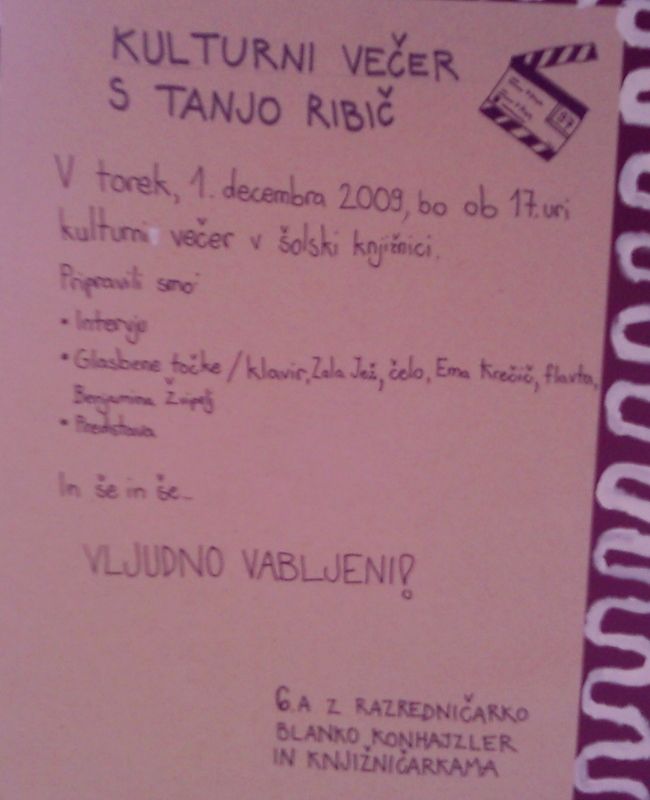 KULTURNI VEČER
S TANJO RIBIČ
V torek, 1. decembra 2009, bo ob 17. uri
kulturni večer v šolski knjižnici.
Pripravili smo:
• Intervju
• Glasbene točke / klavir, Zala Jež, čelo, Ema Krečič, flavta,
Benjamina
• Predstava
In še in še...
VLJUDNO VABLJENI!
6.A Z RAZREDNIČARKO
BLANKO KONHAJZLER
IN KNJIŽNIČARKAMA